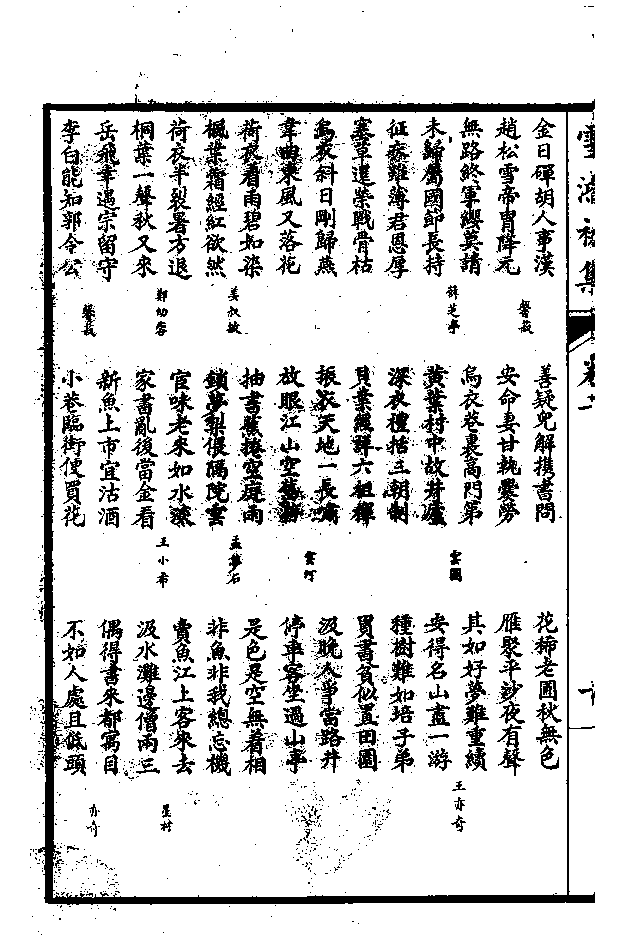 雪鴻初集
金日磾胡人事漢 善疑兒解攜書問 花稀老圃秋無色
趙松雪帝胄降元 馨菽 安命妻甘執爨勞 雁聚平沙夜有聲
無路終軍纓莫請 烏衣巷裏高門第 其如好夢難重續
未歸屬國節長持 薛芝亭 黃葉村中故井廬 雲圃 安得名山盡一游 王亦奇
征袍難薄君恩厚 深衣禮括三朝制 種樹難如培子弟
塞草還榮戰骨枯 貝葉經詳六祖禪 買書貧似置田園
烏衣斜日剛歸燕 振衣天地一長嘯 汲晚人爭當路井
韋曲東風又落花 放眼江山空 雲 停車客坐過山亭
荷衣着雨碧如染 抽書簾捲空庭雨 是色是空無着相
楓葉霜經紅欲然 姜叔敏 鎖夢梨偎隔院雲 孟夢石 非魚非我總忘機
荷衣半裂暑方退 宦味老來如水淡 賣魚江上客來去
桐葉一聲秋又來 鄭幼容 家書亂後當金看 王小希 汲水灘邊僧兩三 星村
岳飛幸遇宗留守 新魚上市宜沽酒 偶得書來都寓目
李白能知郭令公 馨菽 小巷臨街便買花 不如人處且低頭 亦奇